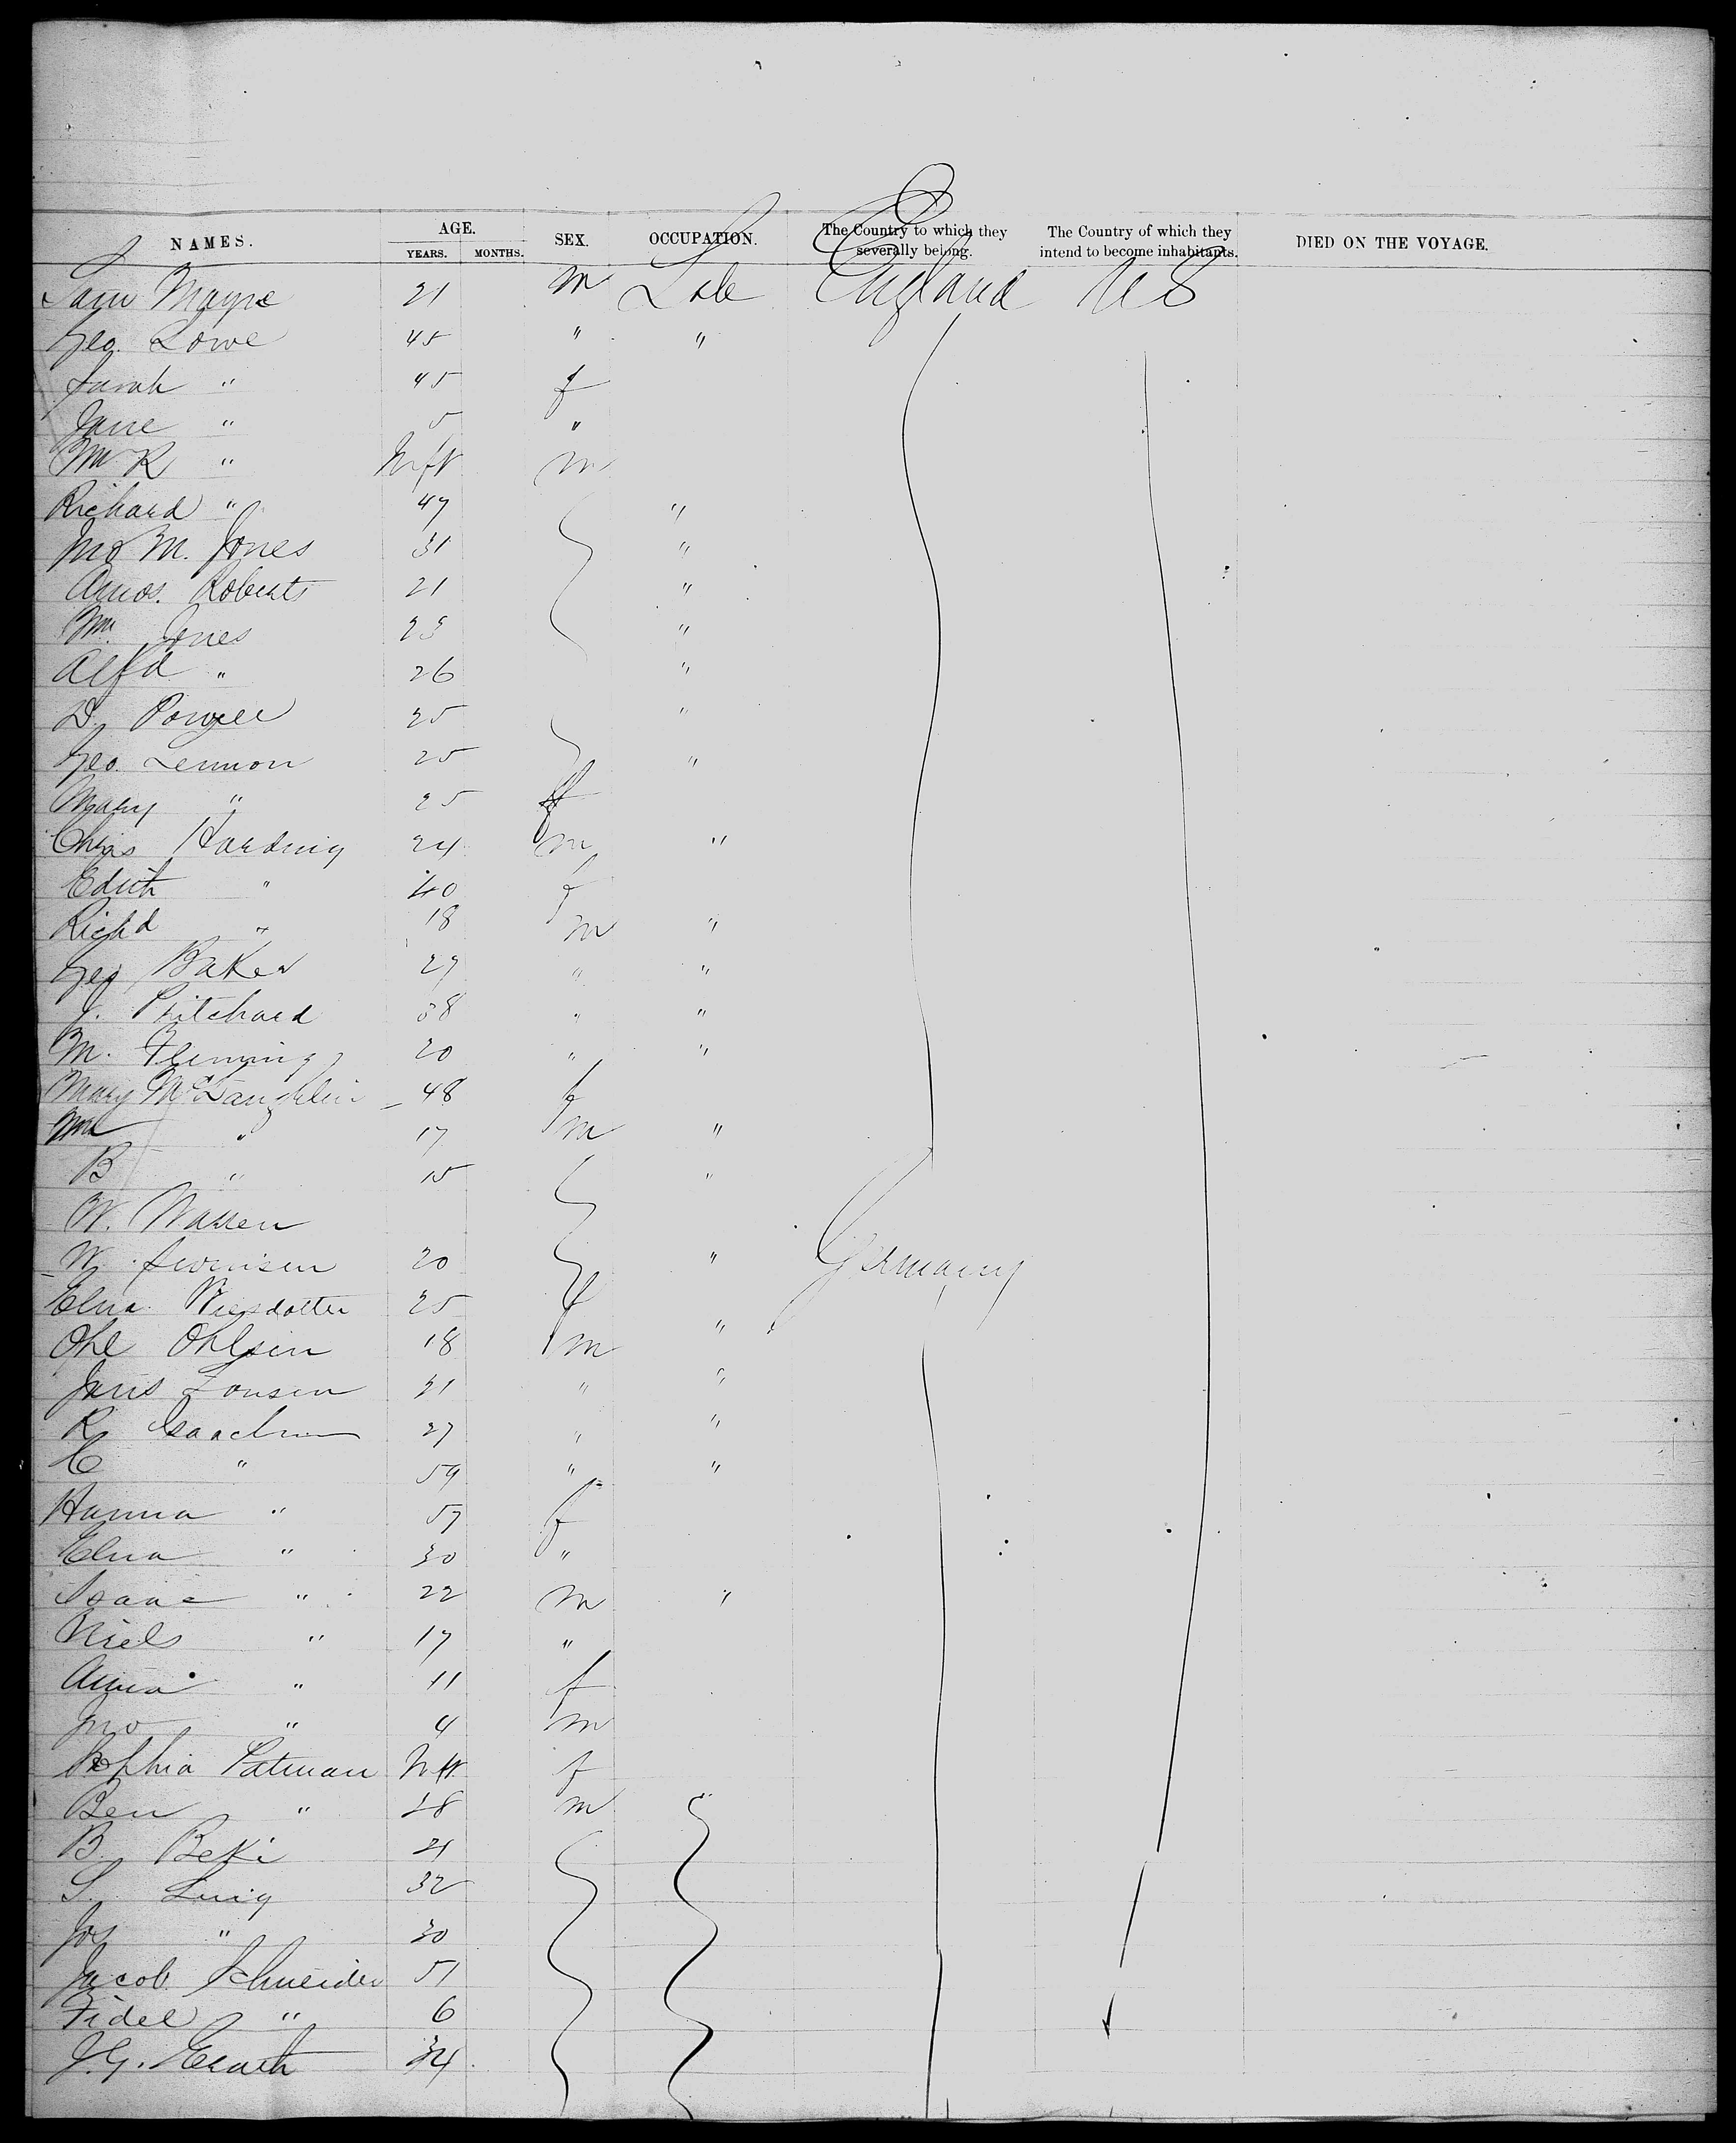 NAMES. AGE. YEARS. MONTHS. SEX. OCCUPATION. The Country to which they severally belong. The Country of which they intend to become inhabitants. DIED ON THE VOYAGE.
Sam Mayne 21 m Lab England US
Geo. Lowe 45 " "
Sarah " 45 f
Jane " 5 "
Wm R " Inft m
Richard " 47 "
Jno M. Jones 31 "
Amos. Roberts 21 "
Wm Jones 23 "
Alfd " 26 "
D. Powell 25 "
Geo. Lennon 25 "
Mary " 25 f
Chas Harding 24 m "
Edith " 40 f
Richd " 18 m "
Geo Baker 27 " "
J. Pritchard 38 " "
M. Fleming 20 " "
Mary McLaughlin 48 f
Wm " 17 m "
B " 15 "
W. Warren
W. Swensen 20 " Germany
Elna 25 f
Ohl Ohlsen 18 m "
Jons 21 " "
R. 27 " "
C " 59 " "
Hanna " 57 f
Elna " 30 "
Isaac " 22 m "
Niels " 17 "
Anna " 11 f
Jno " 4 m
Sophia Patman Inft f
Ben " 28 m "
B. Beki 21
S. 32
Jos " 30
Jacob Schneider 51
Fidel " 6
J.G. 34